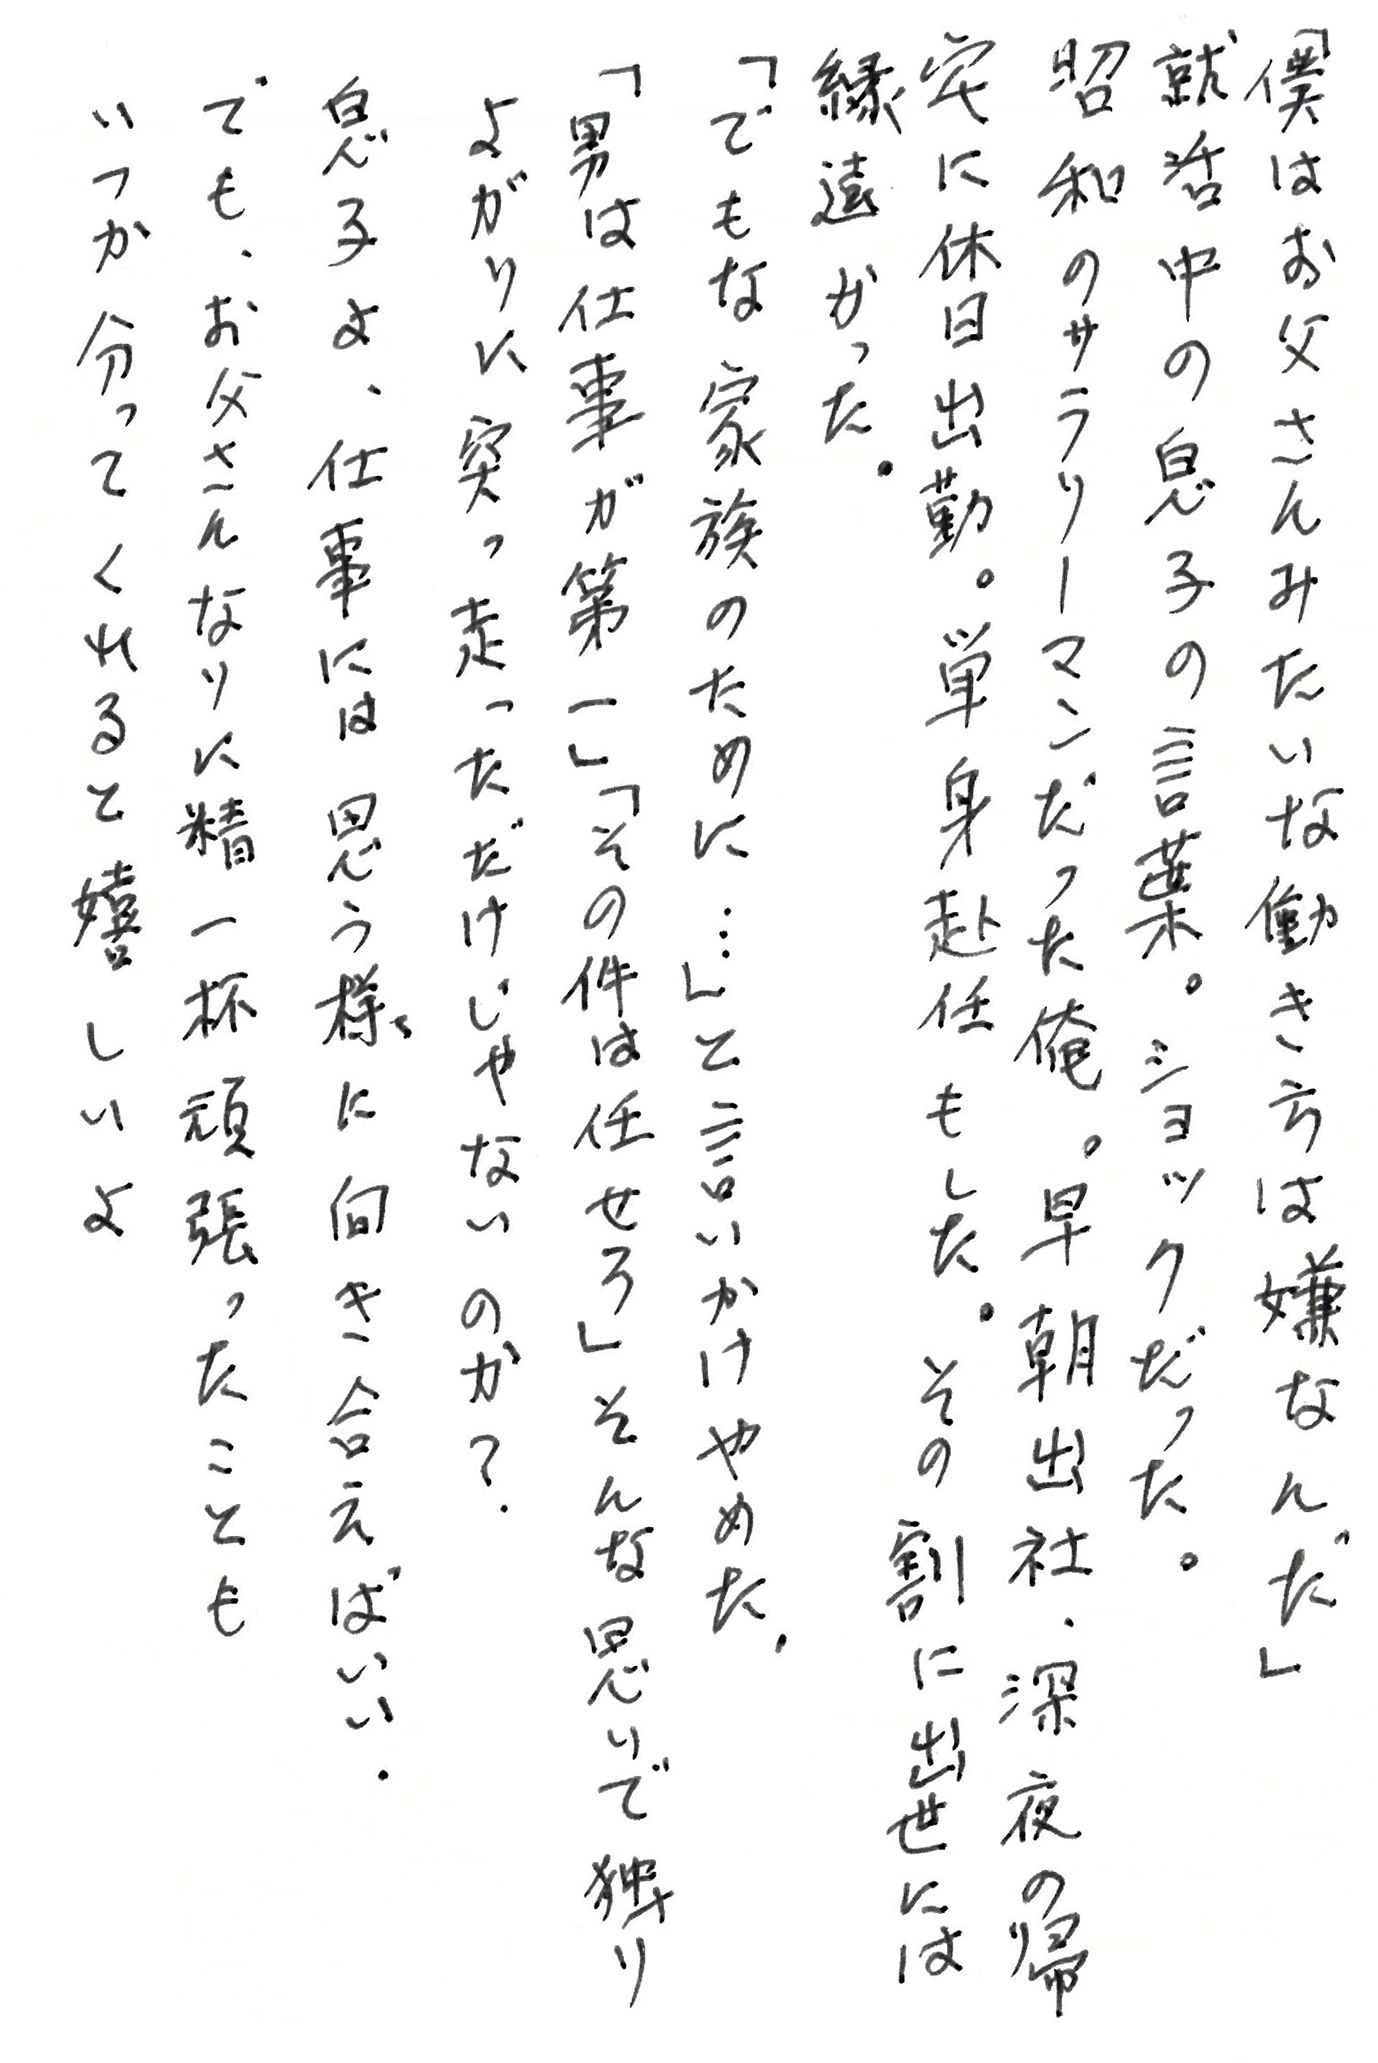 「僕はお父さんみたいな働き方は嫌なんだ」
就活中の息子の言葉。ショックだった。
昭和のサラリーマンだった俺。早朝出社、深夜の帰
宅に休日出勤。単身赴任もした。その割に出世には
縁遠かった。
「でもな家族のために…」と言いかけやめた。
「男は仕事が第一」「その件は任せろ」そんな思いで独り
よがりに突っ走っただけじゃないのか？
息子よ、仕事には思う様に向き合えばいい。
でも、お父さんなりに精一杯頑張ったことも
いつか分ってくれると嬉しいよ